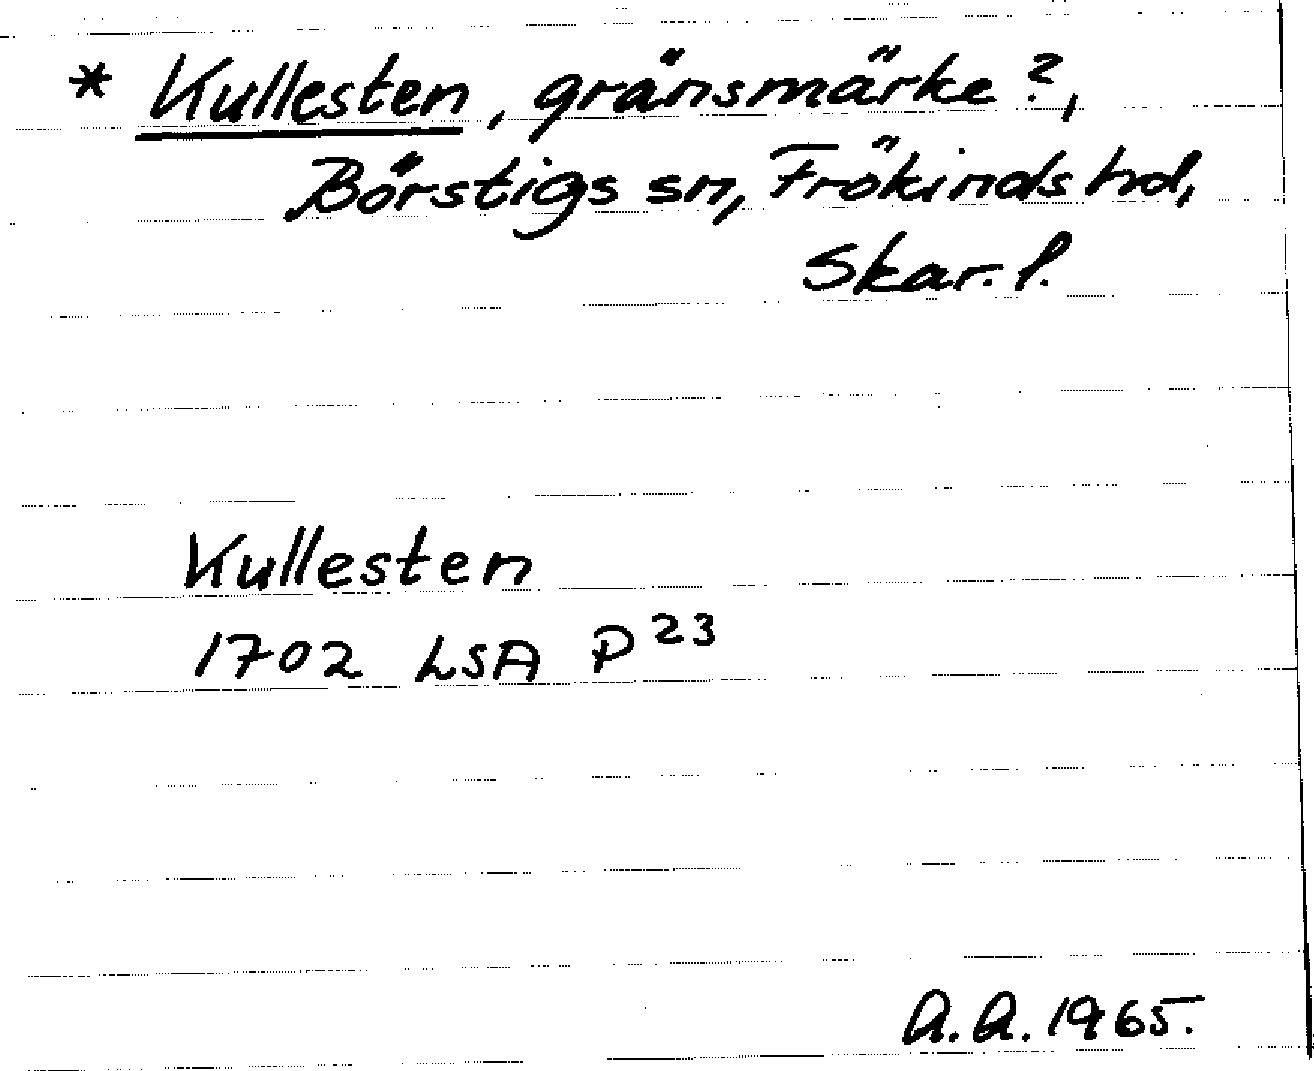 * Kullesten, gränsmärke?,
Börstigs sn, Frökinds hd,
Skar. l.
Kullesten
1702 LSA P23
A.A. 1965.